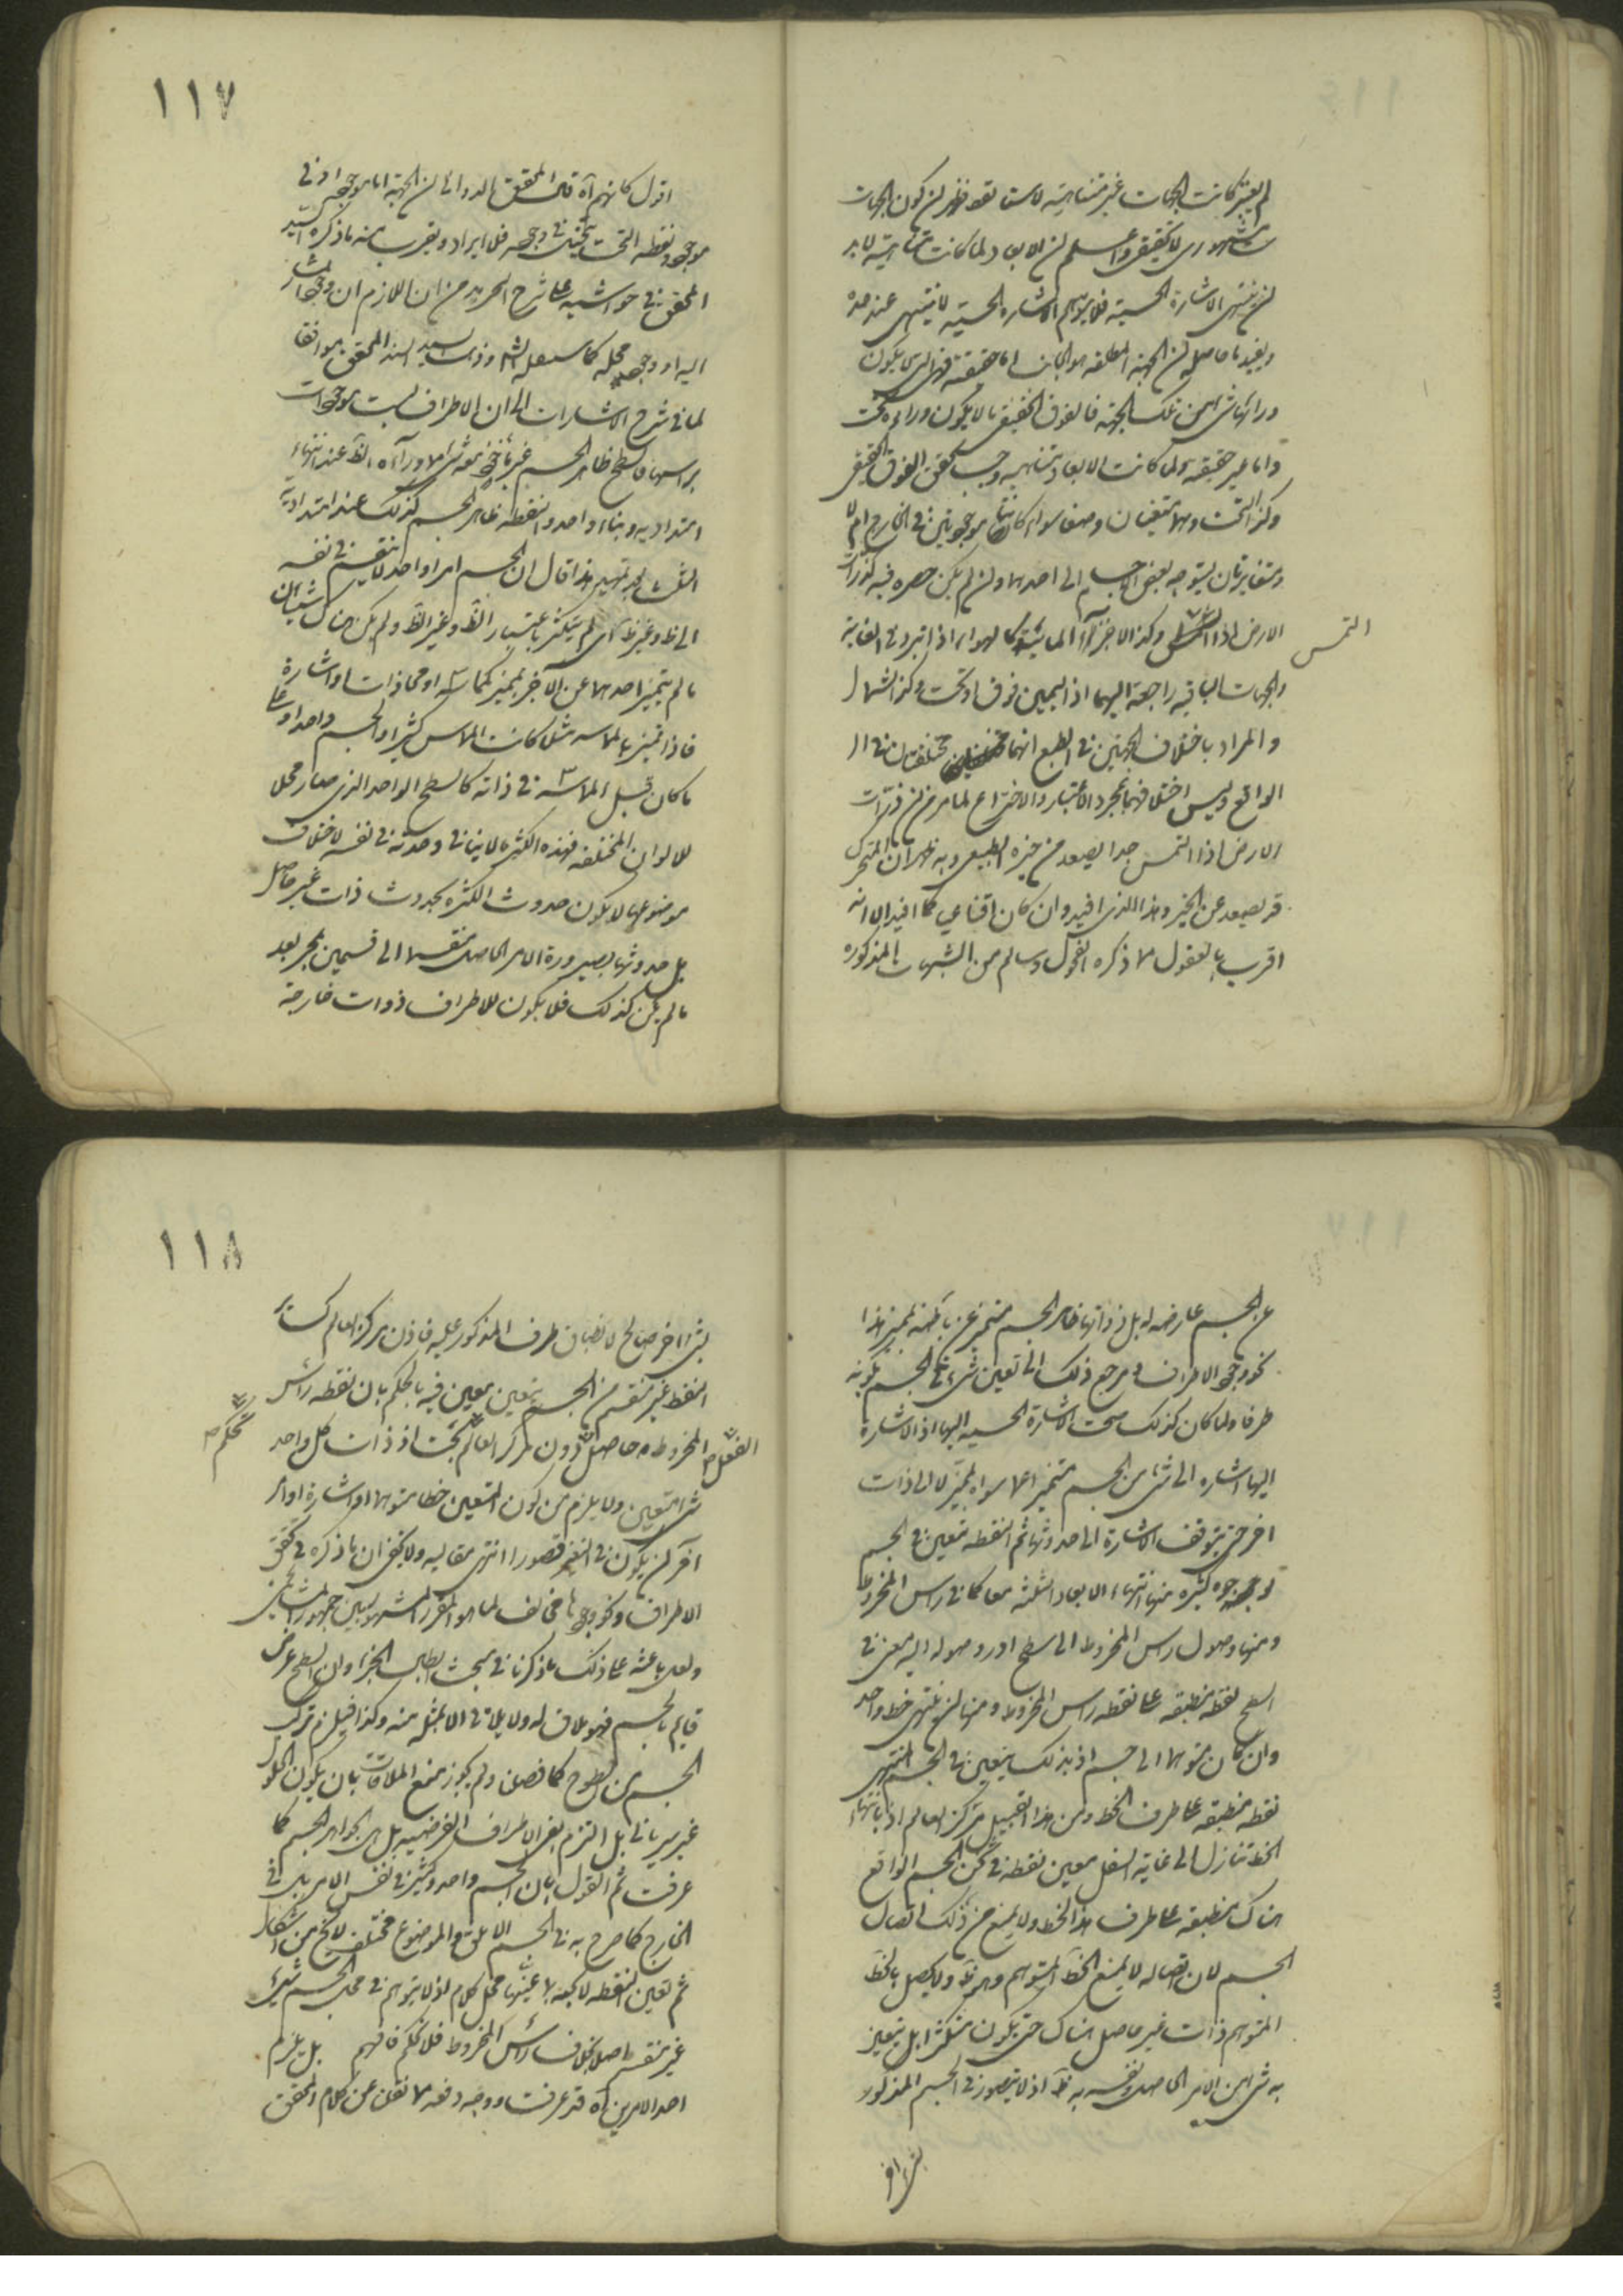 لم يعتبر كانت الجهات غير متناهية كون الجهات
مشهوري لا حقيقي واعلم ان الابعاد لما كانت متناهية لا بد
ان ينتهي الاشارة الحسية فلا يتوهم الاشارة الحسية لا ينتهي عند حد
ان الجهة المطلقة هو اما حقيقة فهي التي يكون
وراءها شئ من تلك الجهة فالفوق الحقيقي ما لا يكون وراءه
واما غير حقيقة ولما كانت الابعاد متناهية وجب تحقق الفوق الحقيقي
وكذا التحت وهما متعينان وضعا سواء كانتا موجودتين في الخارج ام لا
ومتغايرتان يتوجه بعض الاجسام الى احدهما وان لم يكن
الارض اذا وكذا الاجزاء المائية كالهواء اذا
التمس
والجهات الباقية راجعة اليهما اذ اليمين فوق او تحت وكذا الشمال
والمراد باختلاف الجهتين في الطبع انهما مختلفان في ا
الواقع وليس اختلافهما بمجرد الاعتبار والاختراع لما مر من ان ذرات
الارض اذا التمس جدا يصعد من حيزه الطبيعي وبه ظهر ان المتحرك
قد يصعد عن الحيز وهذا الذي افيد وان كان اقناعي كما افيد الا انه
اقرب بالعقول مما ذكره الفحول وسالم من الشبهات المذكورة
١١٧
اقول كانهم آه قال المحقق الدواني ان الجهة اما موجودة في
موجود ونقطة التحت فلا ايراد ويقرب منه ما ذكره السيد
المحقق في حواشيه على شرح التجريد من ان اللازم ان وجود المشار
اليه او وجود محله كما سينقله الش وذهب السيد السند المحقق موافقا
لما في شرح الاشارات الى ان الاطراف ليست بموجودات
براسها فالسطح ظاهر الجسم غير ماخوذ معه شئ مما وراءه والخط عند انتهاء
امتداديه وبقاء واحد والنقطة ظاهر الجسم كذلك عند امتداداته
الثلث بعد تمهيد هذا قال ان الجسم امر واحد لا ينقسم في نفسه
الى خط وغير خط اي لم يتكثر باعتبار الخط وغير الخط ولم يكن هناك شيئان
ما لم يتميز احدهما عن الآخر بمميز كمماسة او محاذات او اشارة
فاذا تميز بالمماسة مثلا كانت المماس كثيرا والجسم واحدا على
ما كان قبل المماسة في ذاته كالسطح الواحد الذي صار محلا
للالوان المختلفة فهذه الكثرة لا ينافي وحدته في نفسه لاختلاف
موضوعهما لا يكون حدوث الكثرة بحدوث ذات غير حاصل
بل حدوثها بصيرورة الامر الحاصل منقسما الى قسمين بعد
ما لم يكن كذلك فلا يكون للاطراف ذوات خارجة
عن الجسم عارضة له بل ذواتها ظاهر الجسم متميز عن باطنه تميز هذا
نحو وجود الاطراف ومرجع ذلك الى تعين شئ في الجسم بكونه
طرفا ولما كان كذلك صحت الاشارة الحسية اليها اذ الاشارة
اليها اشارة الى شئ من الجسم متميز عما سواه تميزا لا الى ذات
اخر حتى يتوقف الاشارة الى حدوثها ثم النقطة تتعين في الجسم
بوجوه كثيرة منها انتهاء الابعاد الثلثة معا كما في راس المخروط
ومنها وصول راس المخروط الى سطح اذ وصوله اليه معين في
السطح نقطة منطبقة على نقطة راس المخروط ومنها ان ينتهي خط واحد
وان كان متوهما الى جسم اذ بذلك يتعين في الجسم المنتهى
نقطة منطبقة على طرف الخط ومن هذا القبيل مركز العالم اذ بانتهاء
الخط تنازل الى غاية السفل معين نقطة في ثخن الجسم الواقع
هناك منطبقة على طرف هذا الخط ولا يمنع من ذلك اتصال
الجسم لان اتصاله لا يمنع الخط المتوهم وهو ظ ولا يحصل بالخط
المتوهم ذات غير حاصل هناك حتى يكون متكثرا بل يتعين
به شئ من الامر الحاصل ونفسه به ظ اذ لا يتصور في الجسم المذكور
بشئ آخر
١١٨
بشئ آخر صالح لانطباق طرف المذكور عليه فاذن مركز العالم كسائر
النقط غير منقسم من الجسم يتعين بمعين فيه فالحكم بان نقطة راس
المخروط حاصلة دون مركز العالم بحت اذ ذات كل واحد
بالفعل
تحكم
شئ متعين ولا يلزم من كون المتعين خطا متوهما او اشارة او امر
آخر ان يكون في التعين قصور انتهى مقاله ولا يخفى ان ما ذكره في تحقق
الاطراف ونحو وجودها مخالف لما هو المقرر المشهور بين جمهور المشائين
ولعل باعثه على ذلك ما ذكرنا في مبحث ابطال الجزء وان السطح عرض
قايم بالجسم فهو ملاق له ولا يلاقي الا بمثله منه وكذا فيلزم تركب
الجسم من سطوح كما فصلنا ولم يجوز منع الملاقات بان يكون الحلول
غير سرياني بل التزم نفي الاطراف العرضية بل هي الجواهر الجسم كما
عرفت ثم القول بان الجسم واحد وكثير في نفس الامر بل في
الخارج كما صرح به في الجسم الابلق والموضوع مختلف لا يخ من اشكال
ثم تعين النقطة لا كيفه بلا معينها محل كلام اذ لا يتوهم في محل الجسم شئ
غير منقسم اصلا بخلاف راس المخروط فلا تحكم فافهم بل يلزم
احد الامرين آه قد عرفت وجه دفعه مما نقلنا عن كلام المحقق